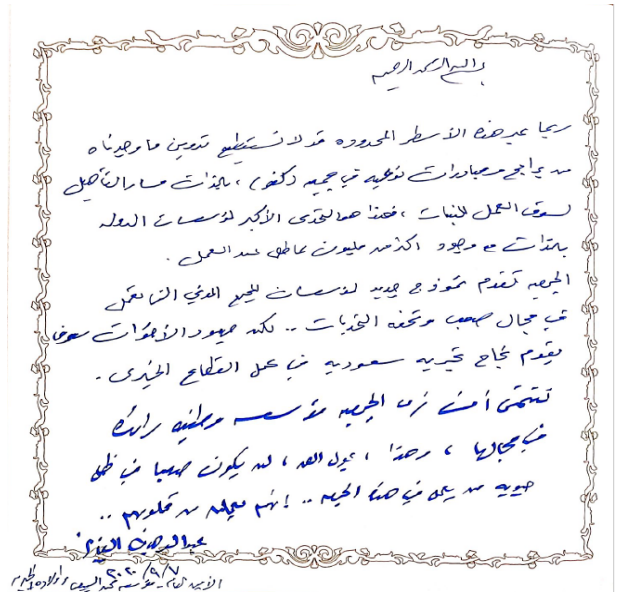 بسم الله الرحمن الرحيم
ربما عبر هذه الأسطر المحدوده قد لا نستطيع تدوين ما وجدناه
من برامج ومبادرات نوعيه في جمعيه ، بالذات مسار التأهيل
لسوق العمل للبنات ، فهذا هو التحدي الأكبر لمؤسسات الدوله
بالذات مع وجود اكثر من مليون عاطل عن العمل .
الجمعيه تقدم نموذج جديد لمؤسسات المجتمع المدني التي تعمل
في مجال صعب وتحفه التحديات .. لكن جهود الأخوات سوف
يقدم نجاح تجربه سعوديه في عمل القطاع الخيري .
نتمنى أن نرى الجمعيه مؤسسه وطنيه رائده
في مجالها ، وهذا ، بحول الله ، لن يكون صعبا في ظل
حيويه من يعمل في هذه الجمعيه .. إنهم يعملون من قلوبهم ..
٢٠٢٠/٩/٧
الأمين العام لمؤسسة محمد السيف